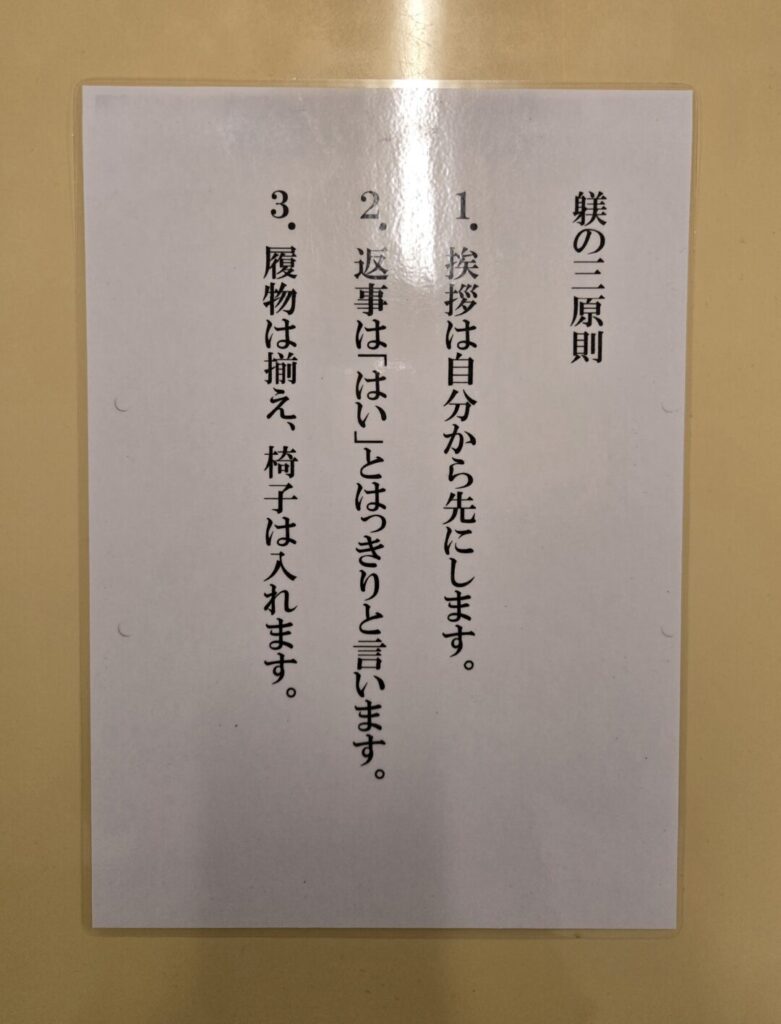 躾の三原則
1. 挨拶は自分から先にします。
2. 返事は「はい」とはっきりと言います。
3. 履物は揃え、椅子は入れます。